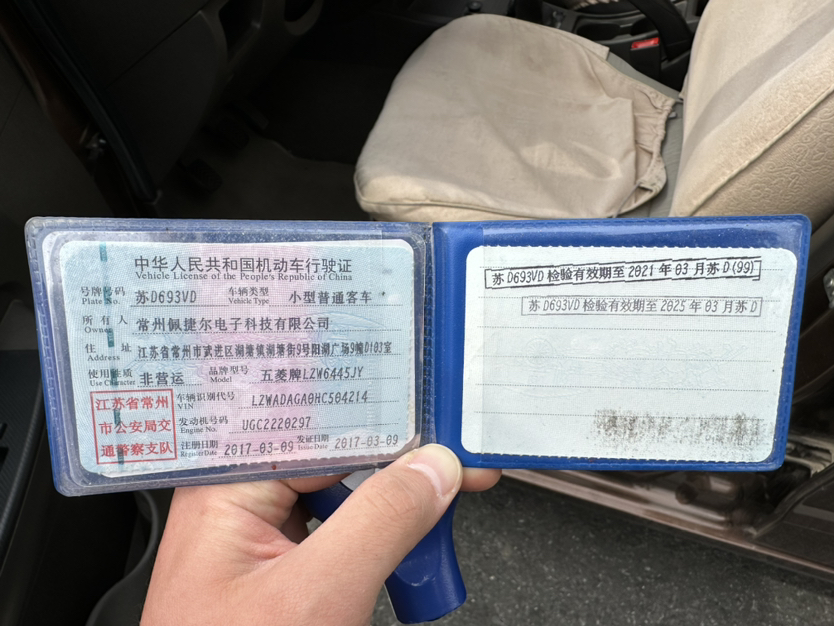 中华人民共和国机动车行驶证
Vehicle License of the People's Republic of China
号牌号码 苏D693VD 车辆类型 小型普通客车
Plate No. Vehicle Type
所有人 常州佩捷尔电子科技有限公司
Owner
住址 江苏省常州市武进区湖塘镇湖塘街9号阳湖广场9幢D103室
Address
使用性质 非营运 品牌型号 五菱牌LZW6445JY
Use Character Model
江苏省常州市公安局交通警察支队
车辆识别代号 LZWADAGA0HC504214
VIN
发动机号码 UGC2220297
Engine No.
注册日期 2017-03-09 发证日期 2017-03-09
Register Date Issue Date
苏D693VD 检验有效期至 2021 年 03 月苏 D(99)
苏D693VD 检验有效期至 2025 年 03 月苏D